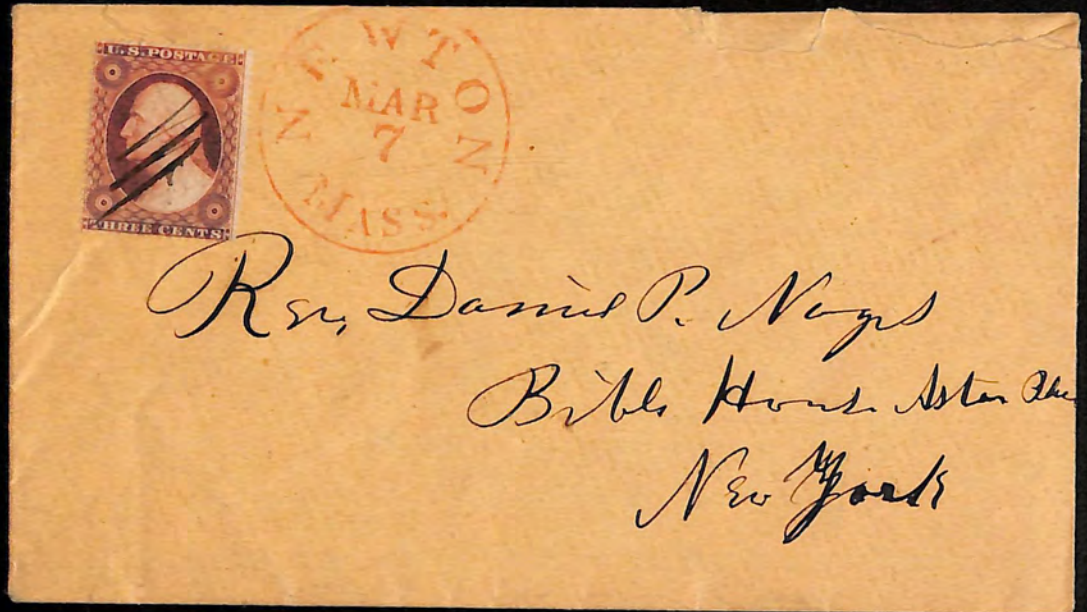 U.S. POSTAGE
THREE CENTS
NEWTON
MAR
7
MASS.
Rev. Daniel P. Noyes
Bible House Astor Place
New York